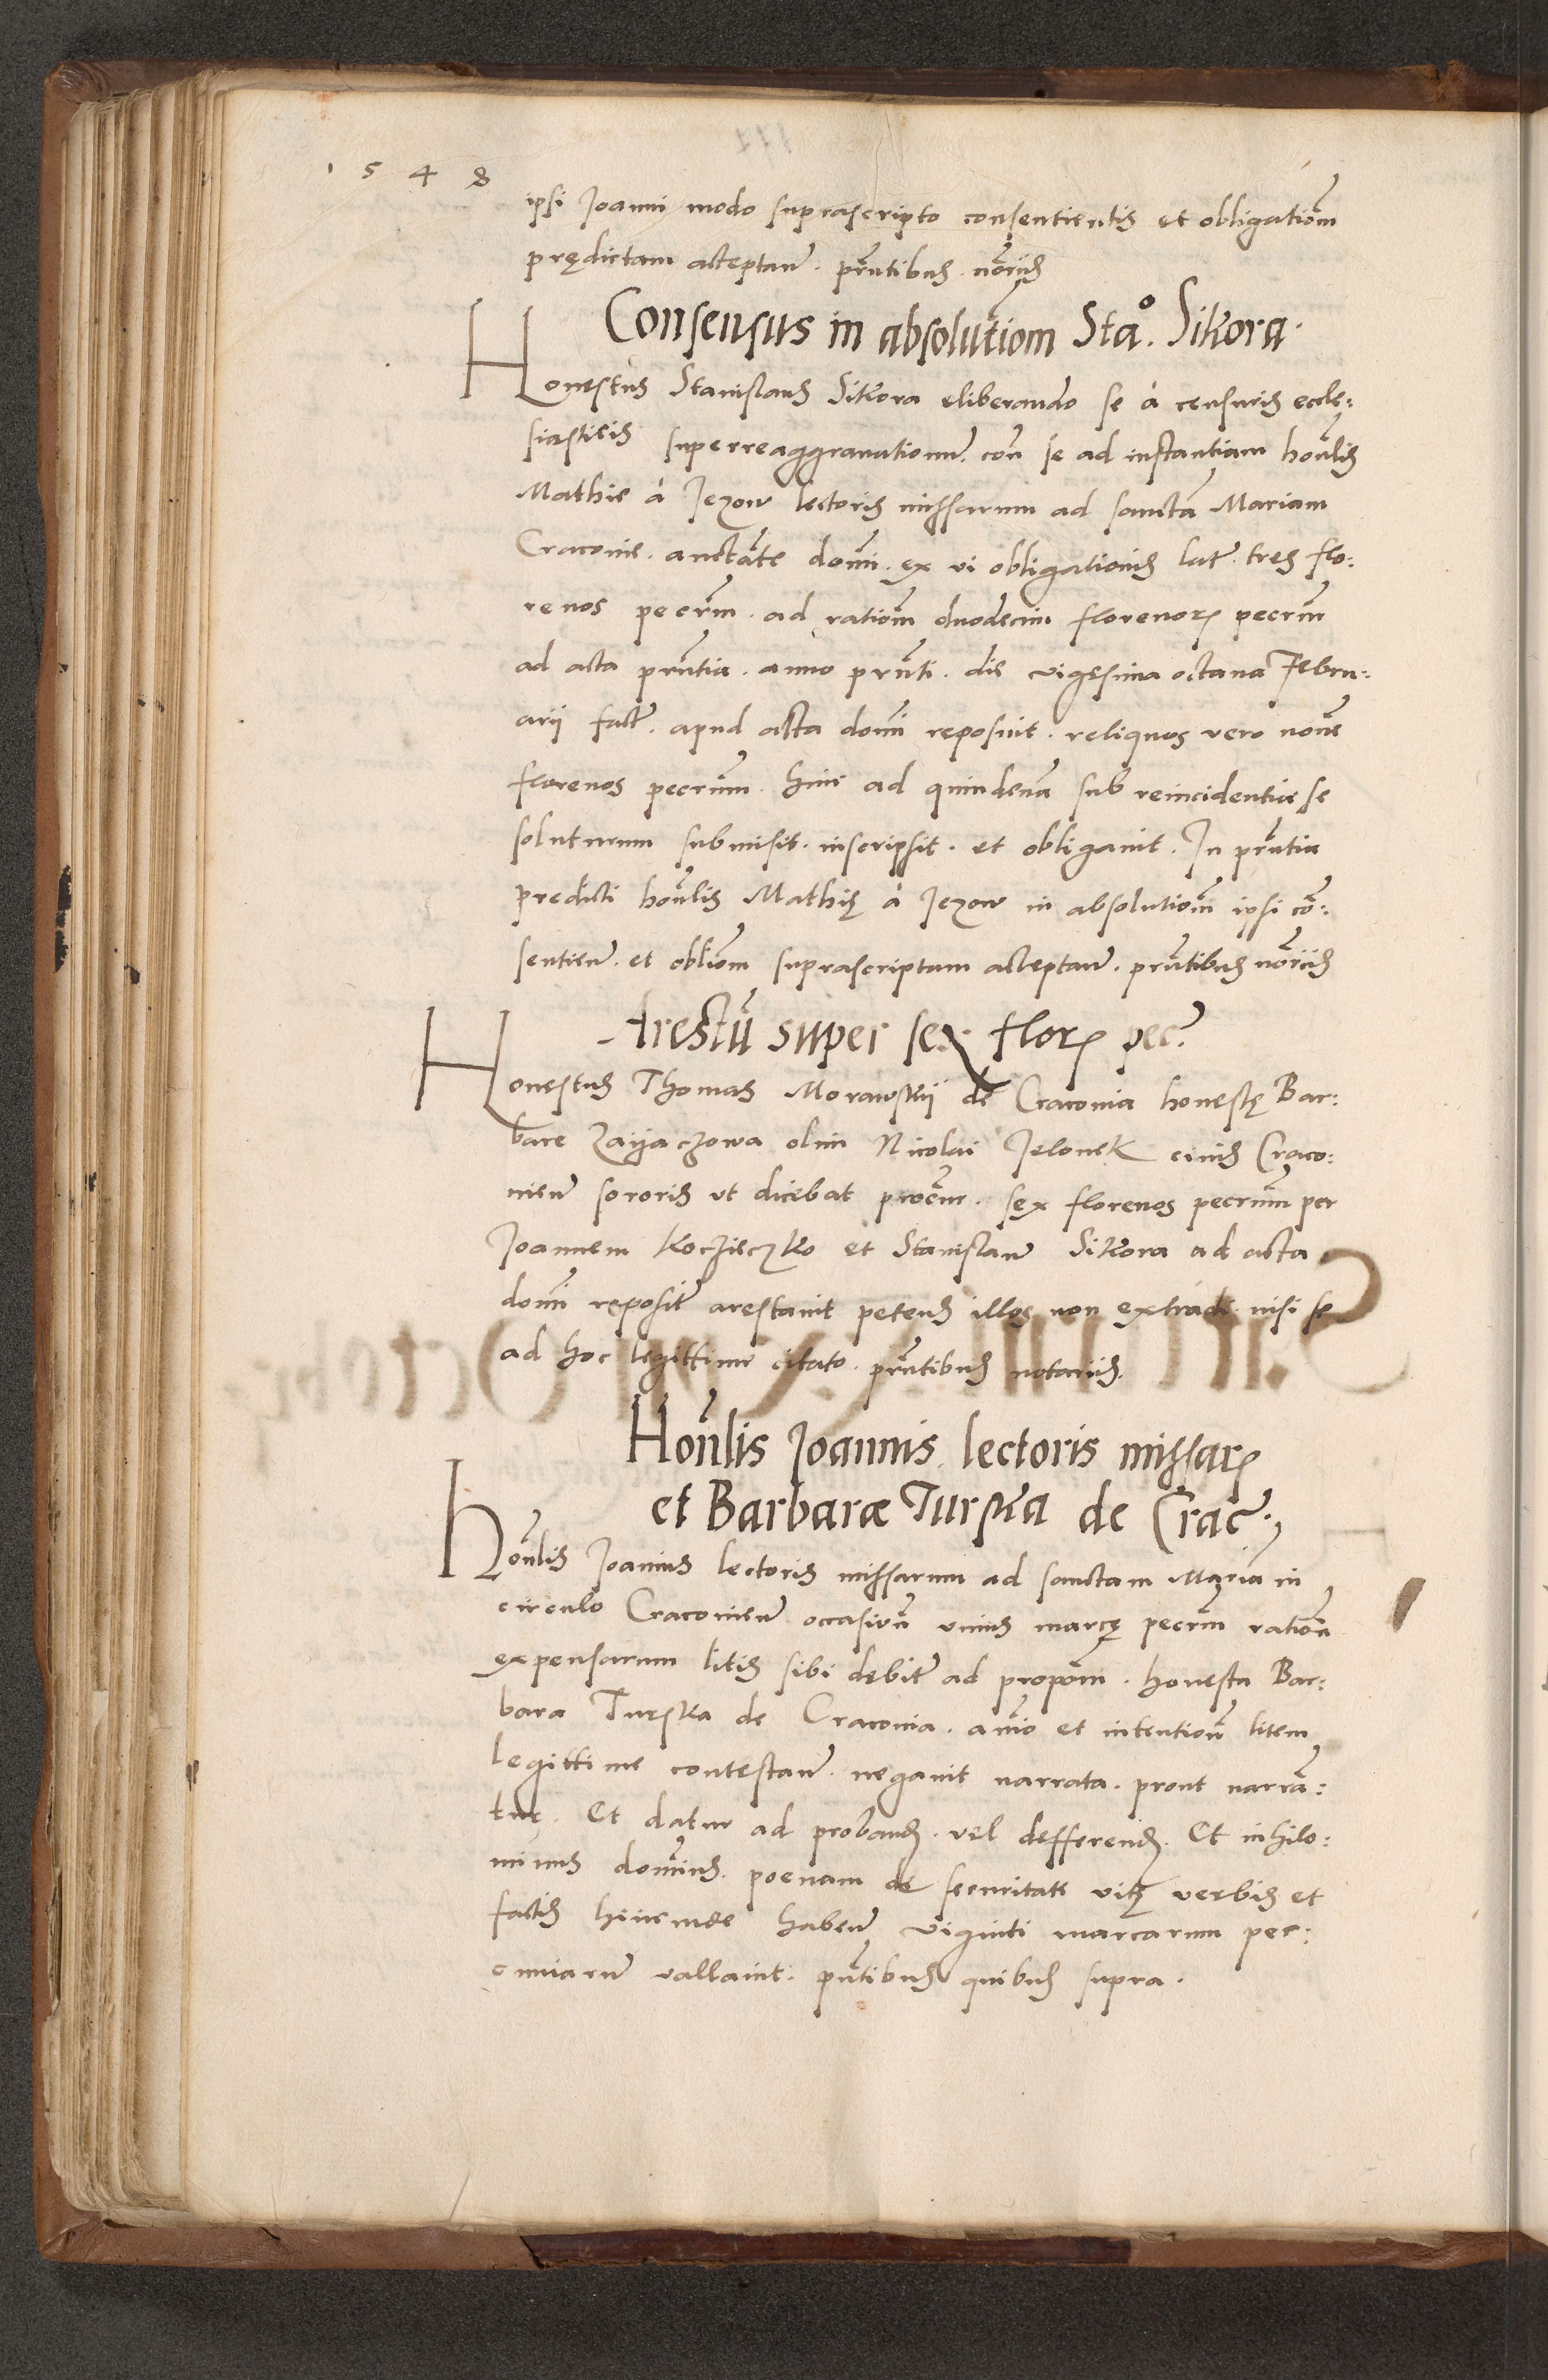 1 5 4 8
ipsi Joanni modo suprascripto consentientis et obligatiom̃
prędictam acceptañ. pñtibus nõriis
Consensus in absolutiom̃ Stã°. Sikora.
Honestus Stanislaus Sikora eliberando se à censuris eccle:
siasticis superreaggravationum. con̄ se ad instantiam honl̃is
Mathie à Jezow lectoris missarum ad sanctã Mariam
Cracovie. auctãte dom̃i. ex vi obligationis lat̃. tres flo:
renos pecñm. ad ratiom̃ duodecim florenoꝝ pecñm
ad acta pñtia. anno pñti. die vigesima octava Febru:
arij fact̃. apud acta dom̃i reposuit. reliquos vero novẽ
florenos pecunm̃. hinc ad quindenã sub reincidentia se
soluturum submisit. inscripsit. et obligavit. In pñtia
predicti honl̃is Mathię à Jezow in absolutiom̃ ipsi cõ:
sentieñ. et obliom̃ suprascriptam acceptañ. pñtibus nõriis
Arestũ super sex floꝝ pec̃.
Honestus Thomas Morawskij de Cracovia honestę Bar:
bare Zayaczowa olim Nicolai Jelonek civis Craco:
vieñ sororis ut dicebat procur̃. sex florenos pecunm̃ per
Joannem Koczieczko et Stanislaũ Sikora ad acta
dom̃i reposit̃ arestavit petens illos non extradi. nisi se
ad hoc legittime citato. pñtibus notariis.
Honl̃is Joannis lectoris missaꝝ
et Barbaræ Turska de Crac̃.
Honl̃is Joannis lectoris missarum ad sanctam Mariã in
circulo Cracovieñ occasioñ. unius marcę pecñm ratioñ
expensarum litis sibi debit̃ ad propom̃. honesta Bar:
bara Turska de Cracovia. ãmo et intentioñ litem
legittime contestañ. negavit narrata. prout narrã:
tur. Et datur ad proband̃. vel defferend̃. Et nihilo:
minus dominus. poenam de securitate vitę verbis et
factis hincinde habeñ viginti marcarum pec:
cuniarũ vallavit. pñtibus quibus supra.